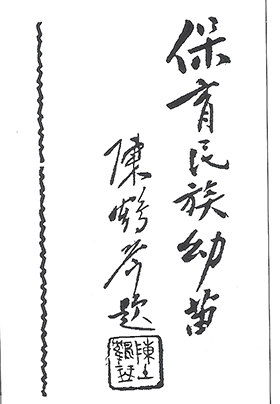 保育民族幼苗
陳鶴琴題
陳鶴琴